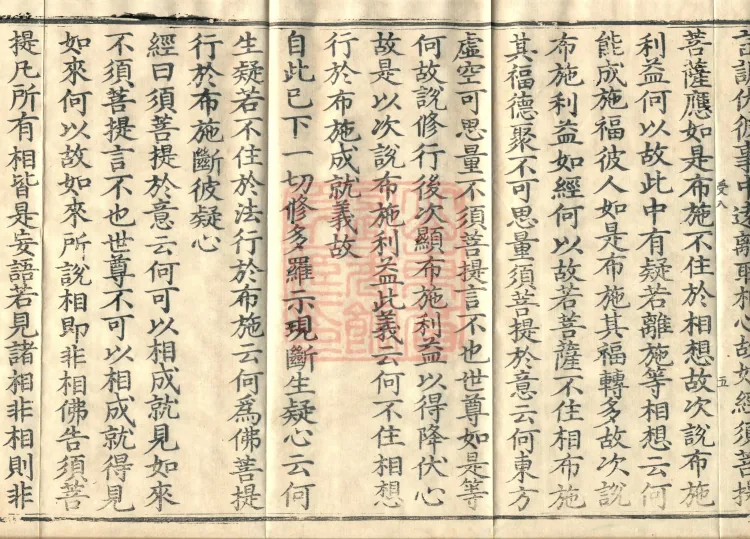 言說依彼事中遠離取相心故如經須菩提
受八 五
菩薩應如是布施不住於相想故次說布施
利益何以故此中有疑若離施等相想云何
能成施福彼人如是布施其福轉多故次說
布施利益如經何以故若菩薩不住相布施
其福德聚不可思量須菩提於意云何東方
虛空可思量不須菩提言不也世尊如是等
何故說修行後次顯布施利益以得降伏心
故是以次說布施利益此義云何不住相想
行於布施成就義故
自此已下一切修多羅示現斷生疑心云何
生疑若不住於法行於布施云何為佛菩提
行於布施斷彼疑心
經曰須菩提於意云何可以相成就見如來
不須菩提言不也世尊不可以相成就得見
如來何以故如來所說相即非相佛告須菩
提凡所有相皆是妄語若見諸相非相則非